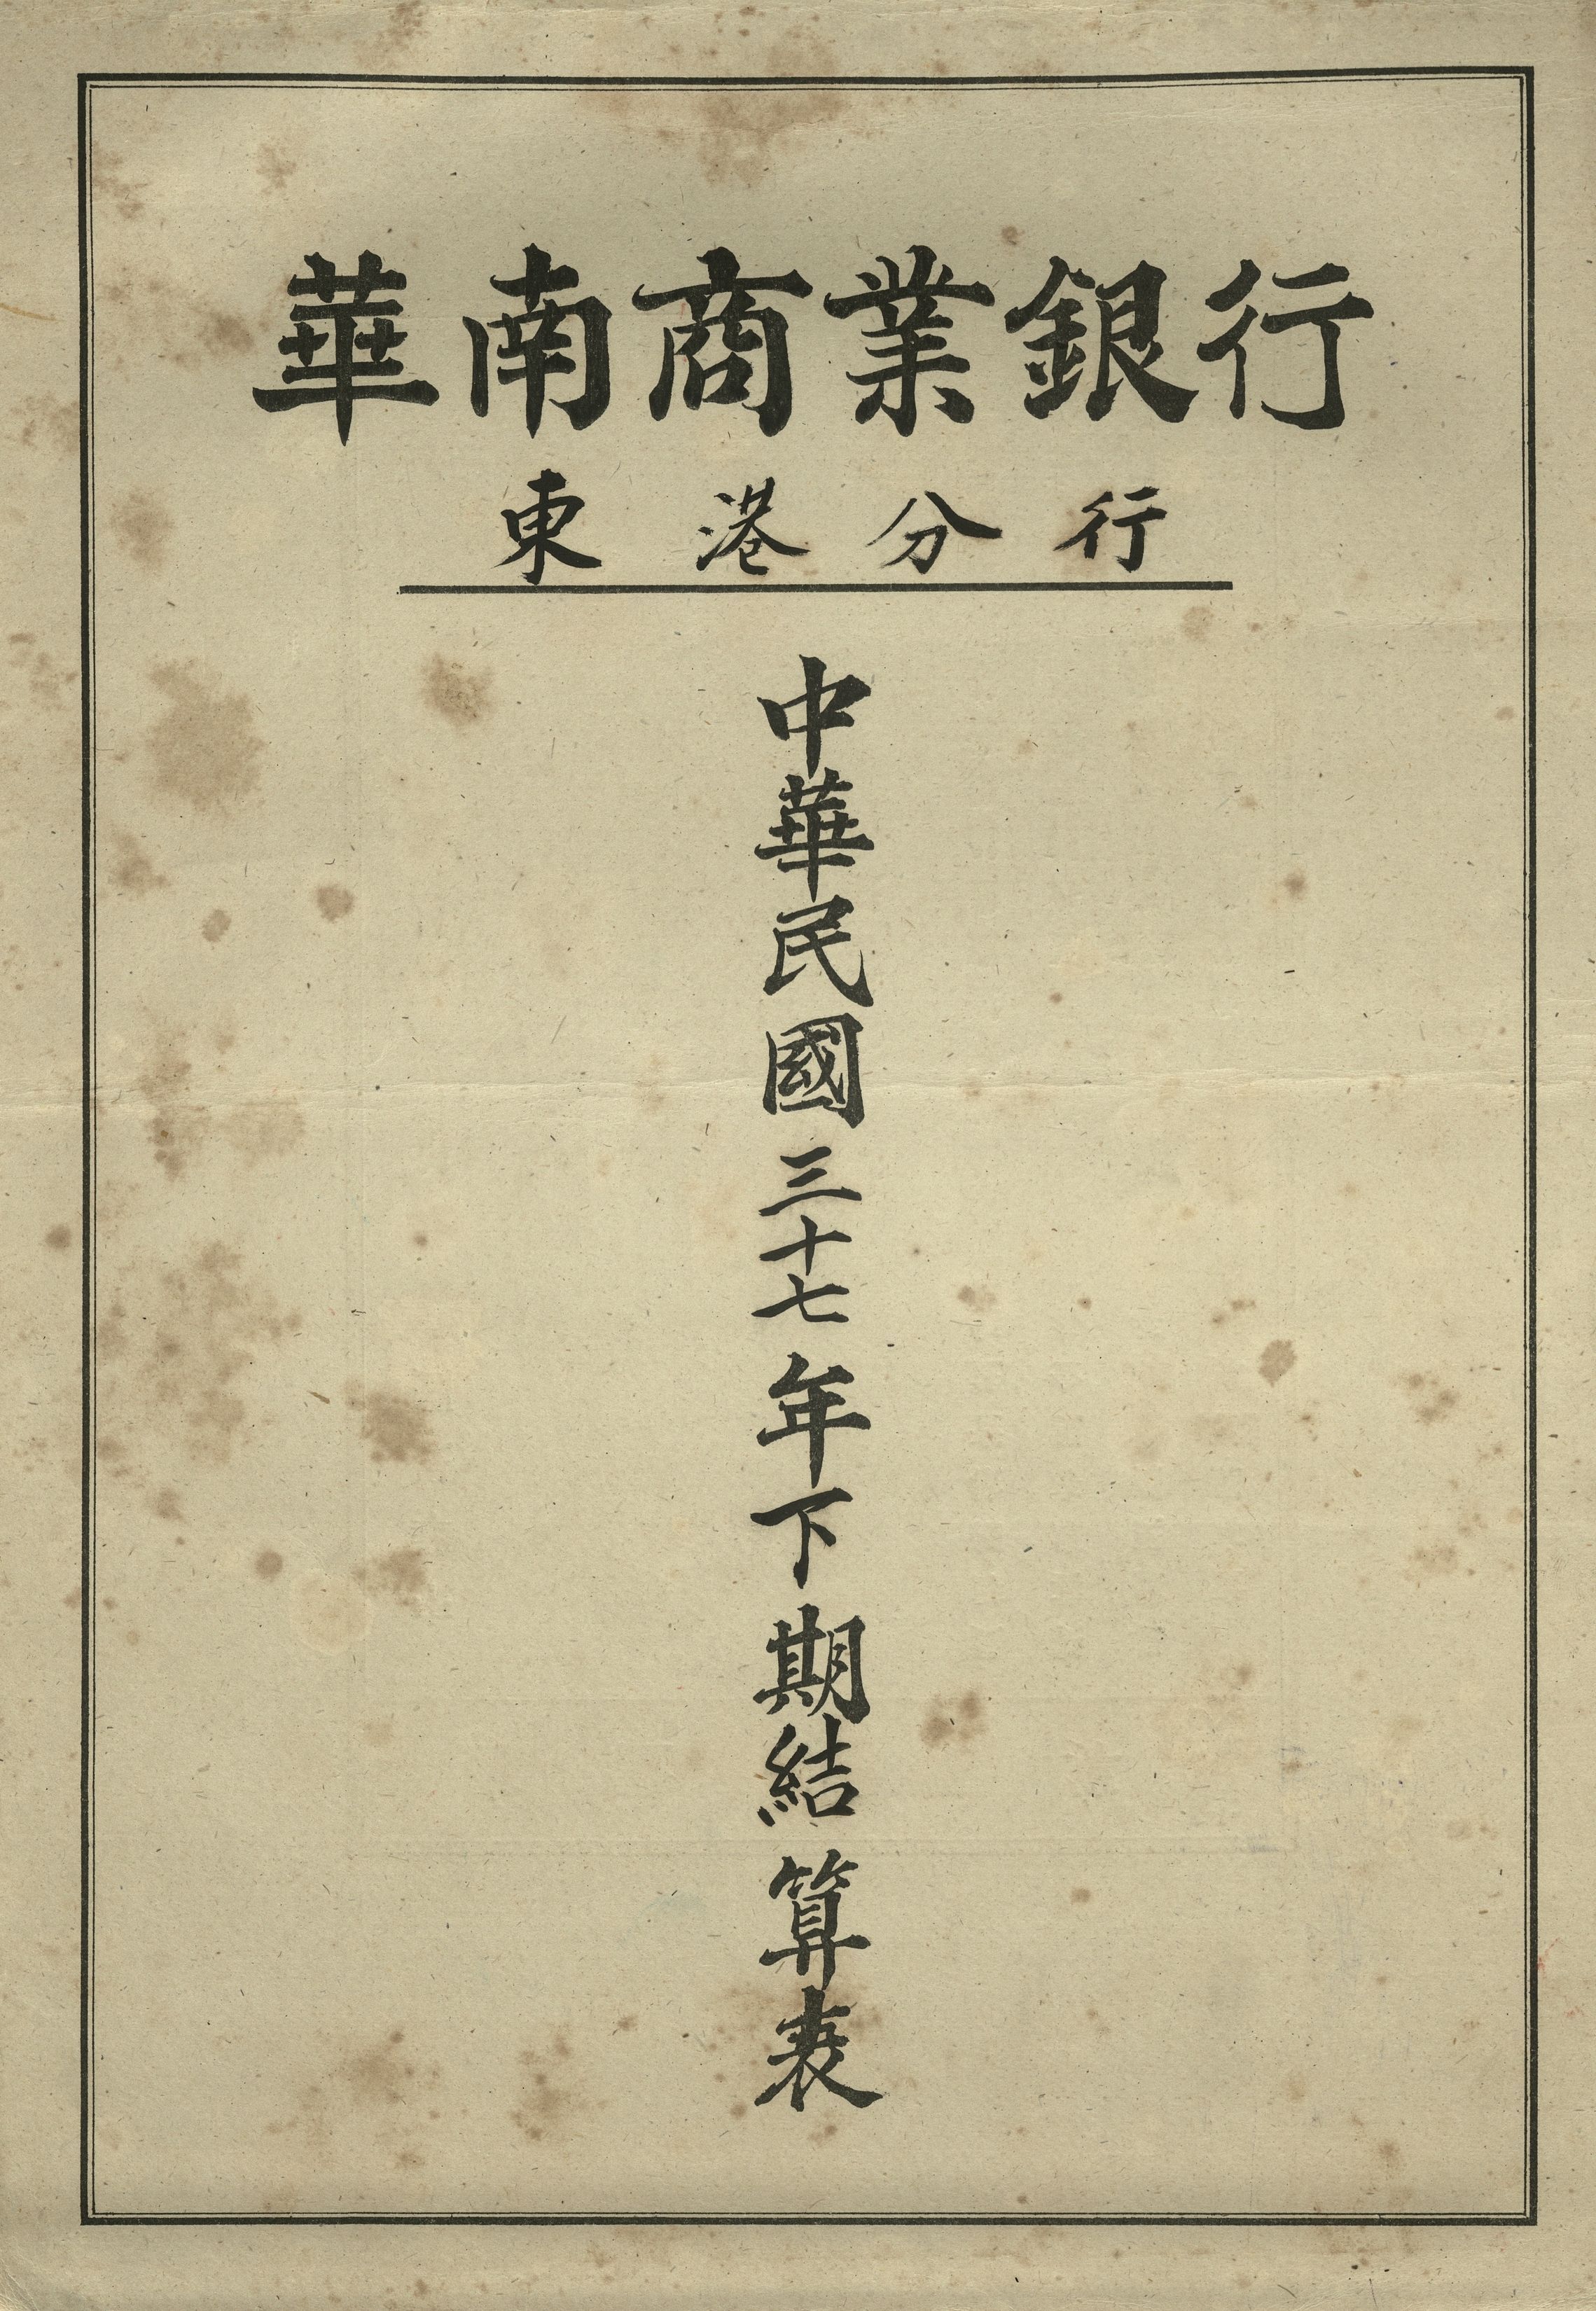 華南商業銀行
東港分行
中華民國三十七年下期結算表